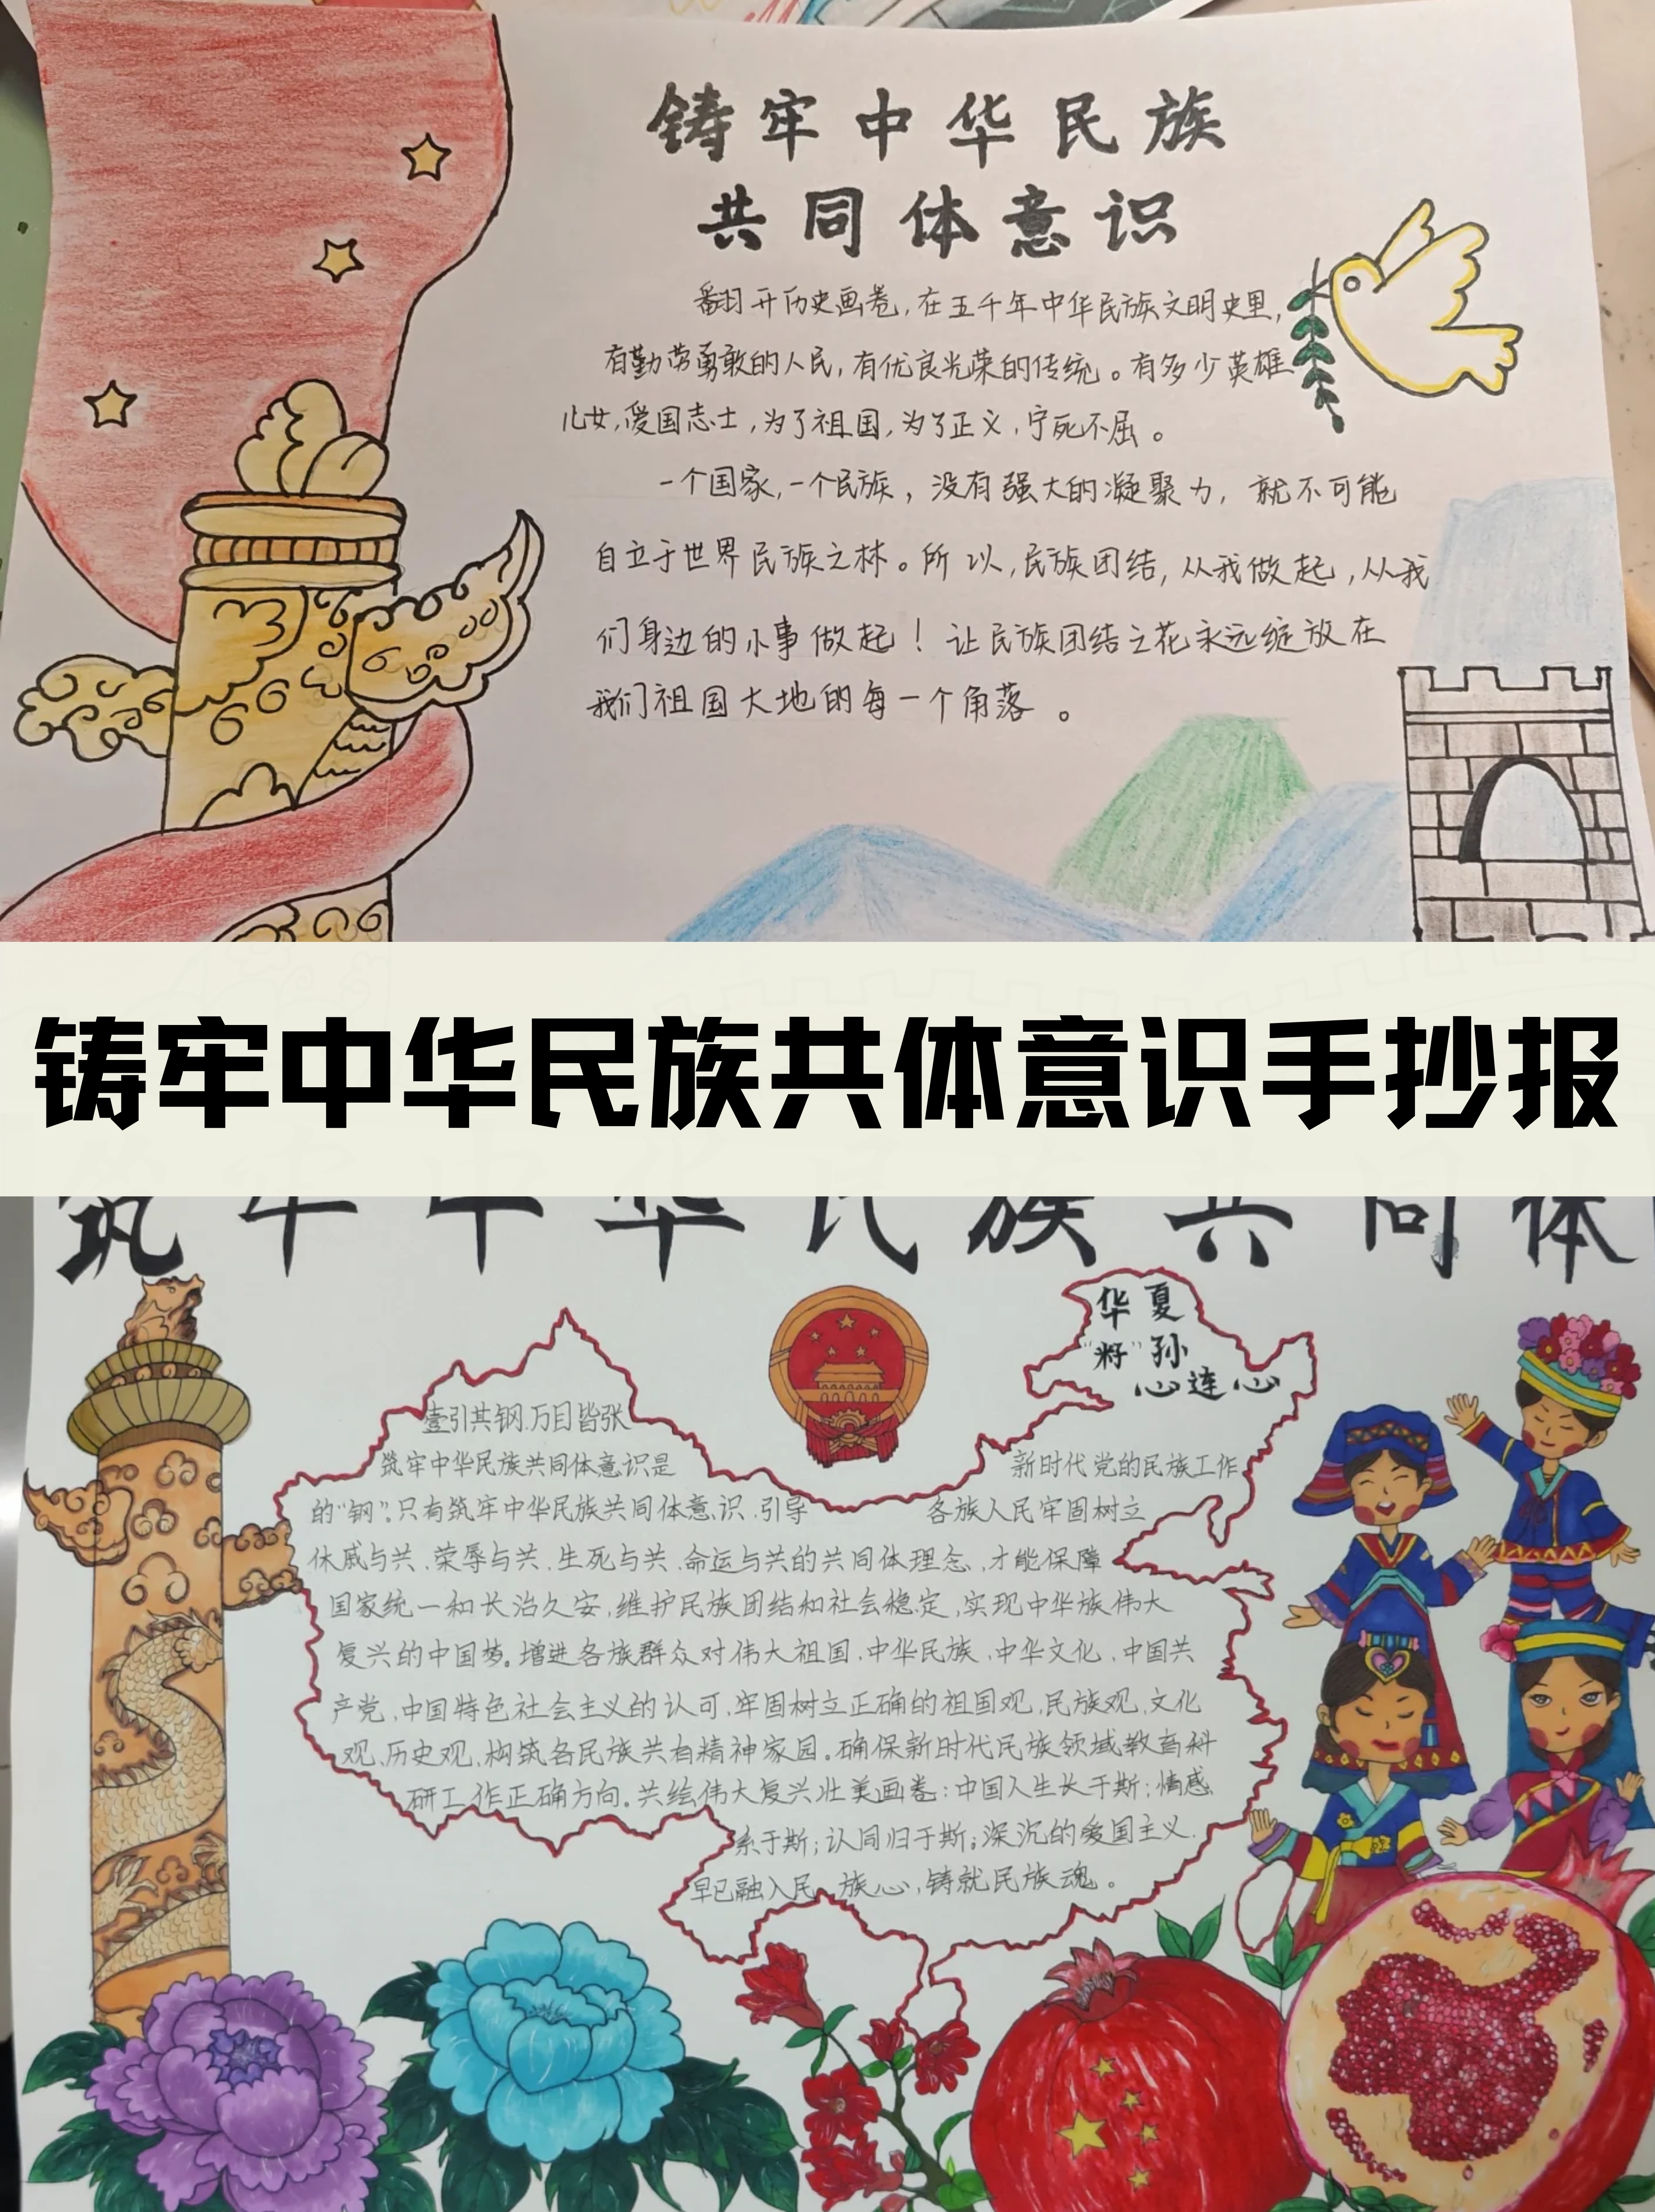 铸牢中华民族
共同体意识
翻开历史画卷，在五千年中华民族文明史里，
有勤劳勇敢的人民，有优良光荣的传统。有多少英雄
儿女，爱国志士，为了祖国，为了正义，宁死不屈。
一个国家，一个民族，没有强大的凝聚力，就不可能
自立于世界民族之林。所以，民族团结，从我做起，从我
们身边的小事做起！让民族团结之花永远绽放在
我们祖国大地的每一个角落。
铸牢中华民族共体意识手抄报
筑牢中华民族共同体
华夏
"籽"孙
心连心
壹引其钢.万目皆张
筑牢中华民族共同体意识是 新时代党的民族工作
的"钢".只有筑牢中华民族共同体意识.引导 各族人民牢固树立
休戚与共.荣辱与共.生死与共.命运与共的共同体理念,才能保障
国家统一和长治久安,维护民族团结和社会稳定,实现中华族伟大
复兴的中国梦。增进各族群众对伟大祖国.中华民族.中华文化.中国共
产党.中国特色社会主义的认可,牢固树立正确的祖国观,民族观,文化
观,历史观,构筑各民族共有精神家园。确保新时代民族领域教育科
研工作正确方向。共绘伟大复兴壮美画卷:中国人生长于斯;情感
系于斯;认同归于斯;深沉的爱国主义.
早已融入民族心,铸就民族魂。